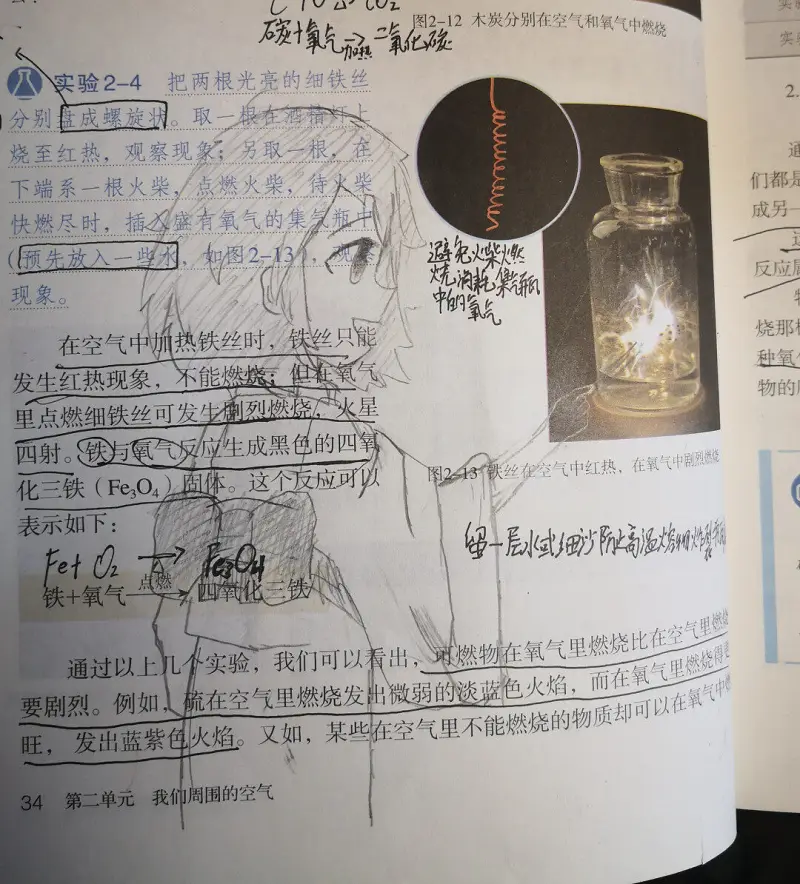 碳+氧气 加热→ 二氧化碳
图2-12 木炭分别在空气和氧气中燃烧
实验2-4 把两根光亮的细铁丝
分别盘成螺旋状。取一根在酒精灯上
烧至红热，观察现象；另取一根，在
下端系一根火柴，点燃火柴，待火柴
快燃尽时，插入盛有氧气的集气瓶中
（预先放入一些水，如图2-13），观察
现象。
避免火柴燃
烧消耗集气瓶
中的氧气
在空气中加热铁丝时，铁丝只能
发生红热现象，不能燃烧；但在氧气
里点燃细铁丝可发生剧烈燃烧，火星
四射。铁与氧气反应生成黑色的四氧
化三铁（Fe₃O₄）固体。这个反应可以
表示如下：
图2-13 铁丝在空气中红热，在氧气中剧烈燃烧
留一层水或细沙防止高温熔融物炸裂
Fe+ O₂ → Fe₃O₄
铁+氧气 点燃→ 四氧化三铁
通过以上几个实验，我们可以看出，可燃物在氧气里燃烧比在空气里燃烧
要剧烈。例如，硫在空气里燃烧发出微弱的淡蓝色火焰，而在氧气里燃烧得更
旺，发出蓝紫色火焰。又如，某些在空气里不能燃烧的物质却可以在氧气中燃
34 第二单元 我们周围的空气
2.
通
们都是
成另一
反应属
烧那样
种氧化
物的质